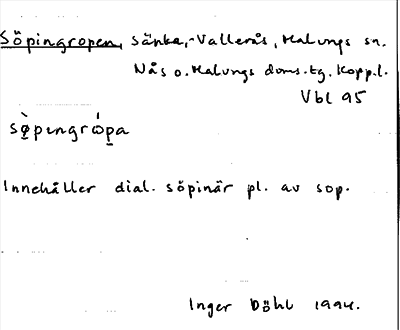 Söpingropen, sänka, Vallerås, Malungs sn.
Nås o. Malungs doms.tg. Kopp.l.
Vbl 95
sø̀pengrὼpa
Innehåller dial. söpinär pl. av sop.
Inger Döhl 1994.